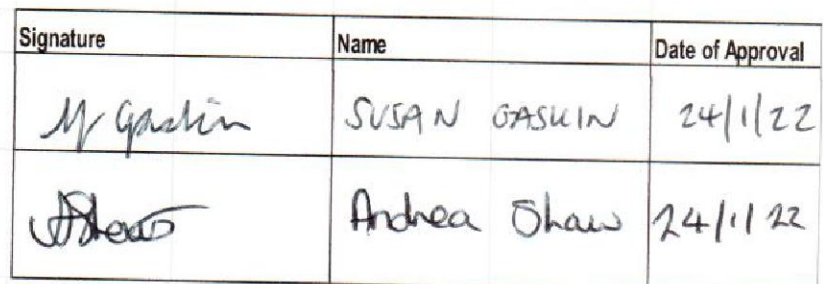 Signature Name Date of Approval
Gaskin SUSAN GASKIN 24/1/22
AShaw Andrea Shaw 24/1/22